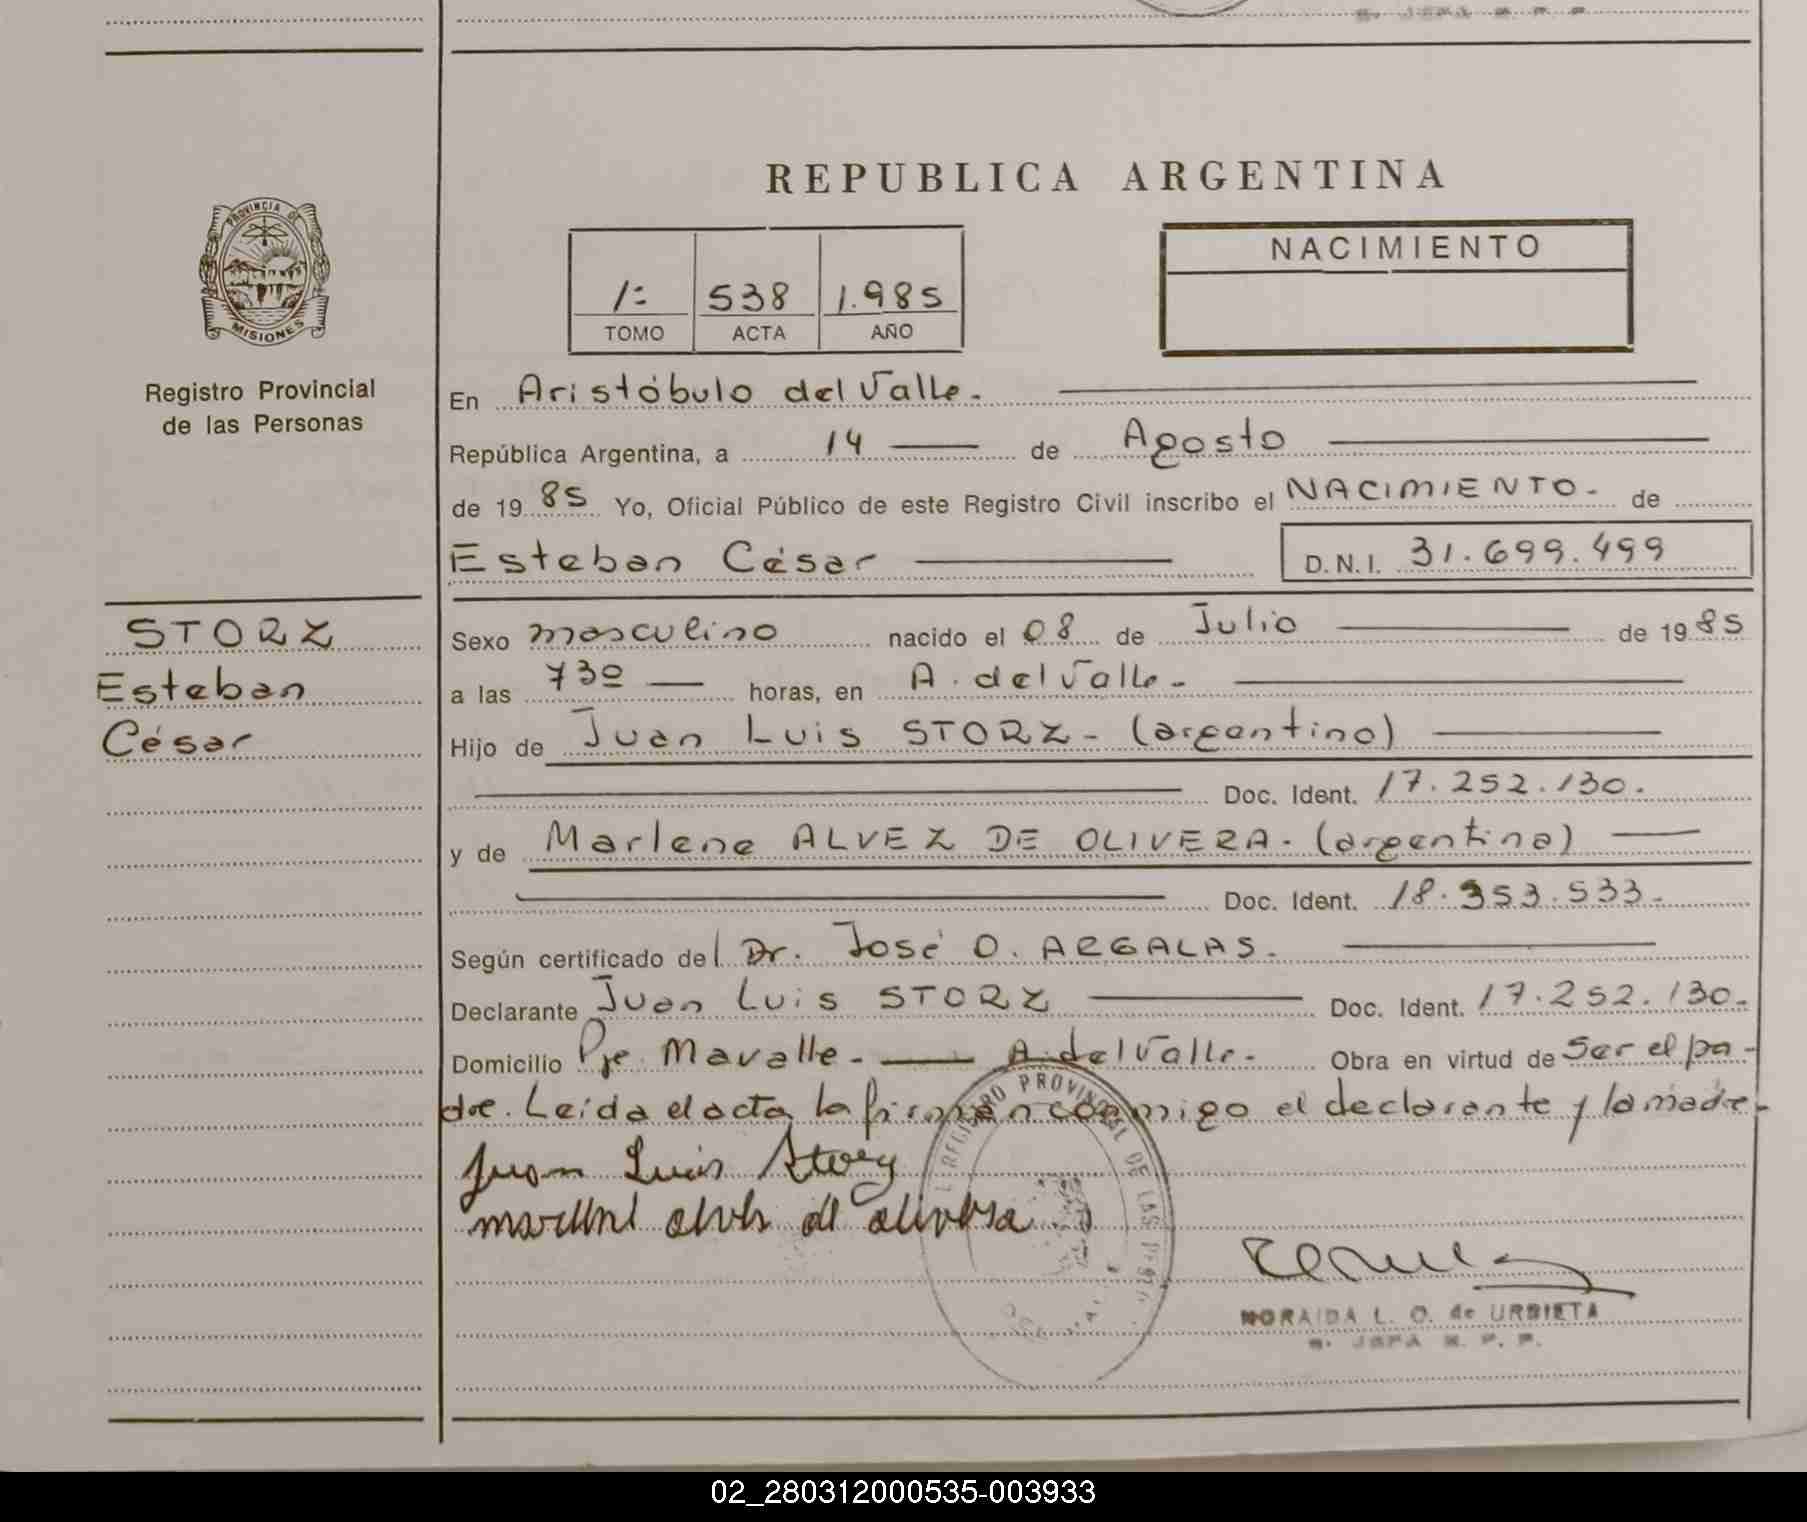 REPUBLICA ARGENTINA
PROVINCIA DE
MISIONES
Registro Provincial
de las Personas
1:
538
1.985
TOMO
ACTA
AÑO
NACIMIENTO
En Aristóbulo del Valle.
República Argentina, a 14 de Agosto
de 19 85 Yo, Oficial Público de este Registro Civil inscribo el NACIMIENTO. de
Esteban César D.N.I. 31.699.499
STORZ
Esteban
César
Sexo masculino nacido el 08 de Julio de 19 85
a las 730 horas, en A. del Valle.
Hijo de Juan Luis STORZ - (argentino)
Doc. Ident. 17.252.130.
y de Marlene ALVEZ DE OLIVERA. (argentina)
Doc. Ident. 18.353.533.
Según certificado del Dr. José O. ARGALAS.
Declarante Juan Luis STORZ Doc. Ident. 17.252.130.
Domicilio Pje. Mavalle. A. del Valle. Obra en virtud de Ser el pa-
dre. Leída el acta, la firman conmigo el declarante y la madre-
Juan Luis Storz
REGISTRO PROVINCIAL DE LAS
NORAIDA L. O. de URBIETA
02_280312000535-003933